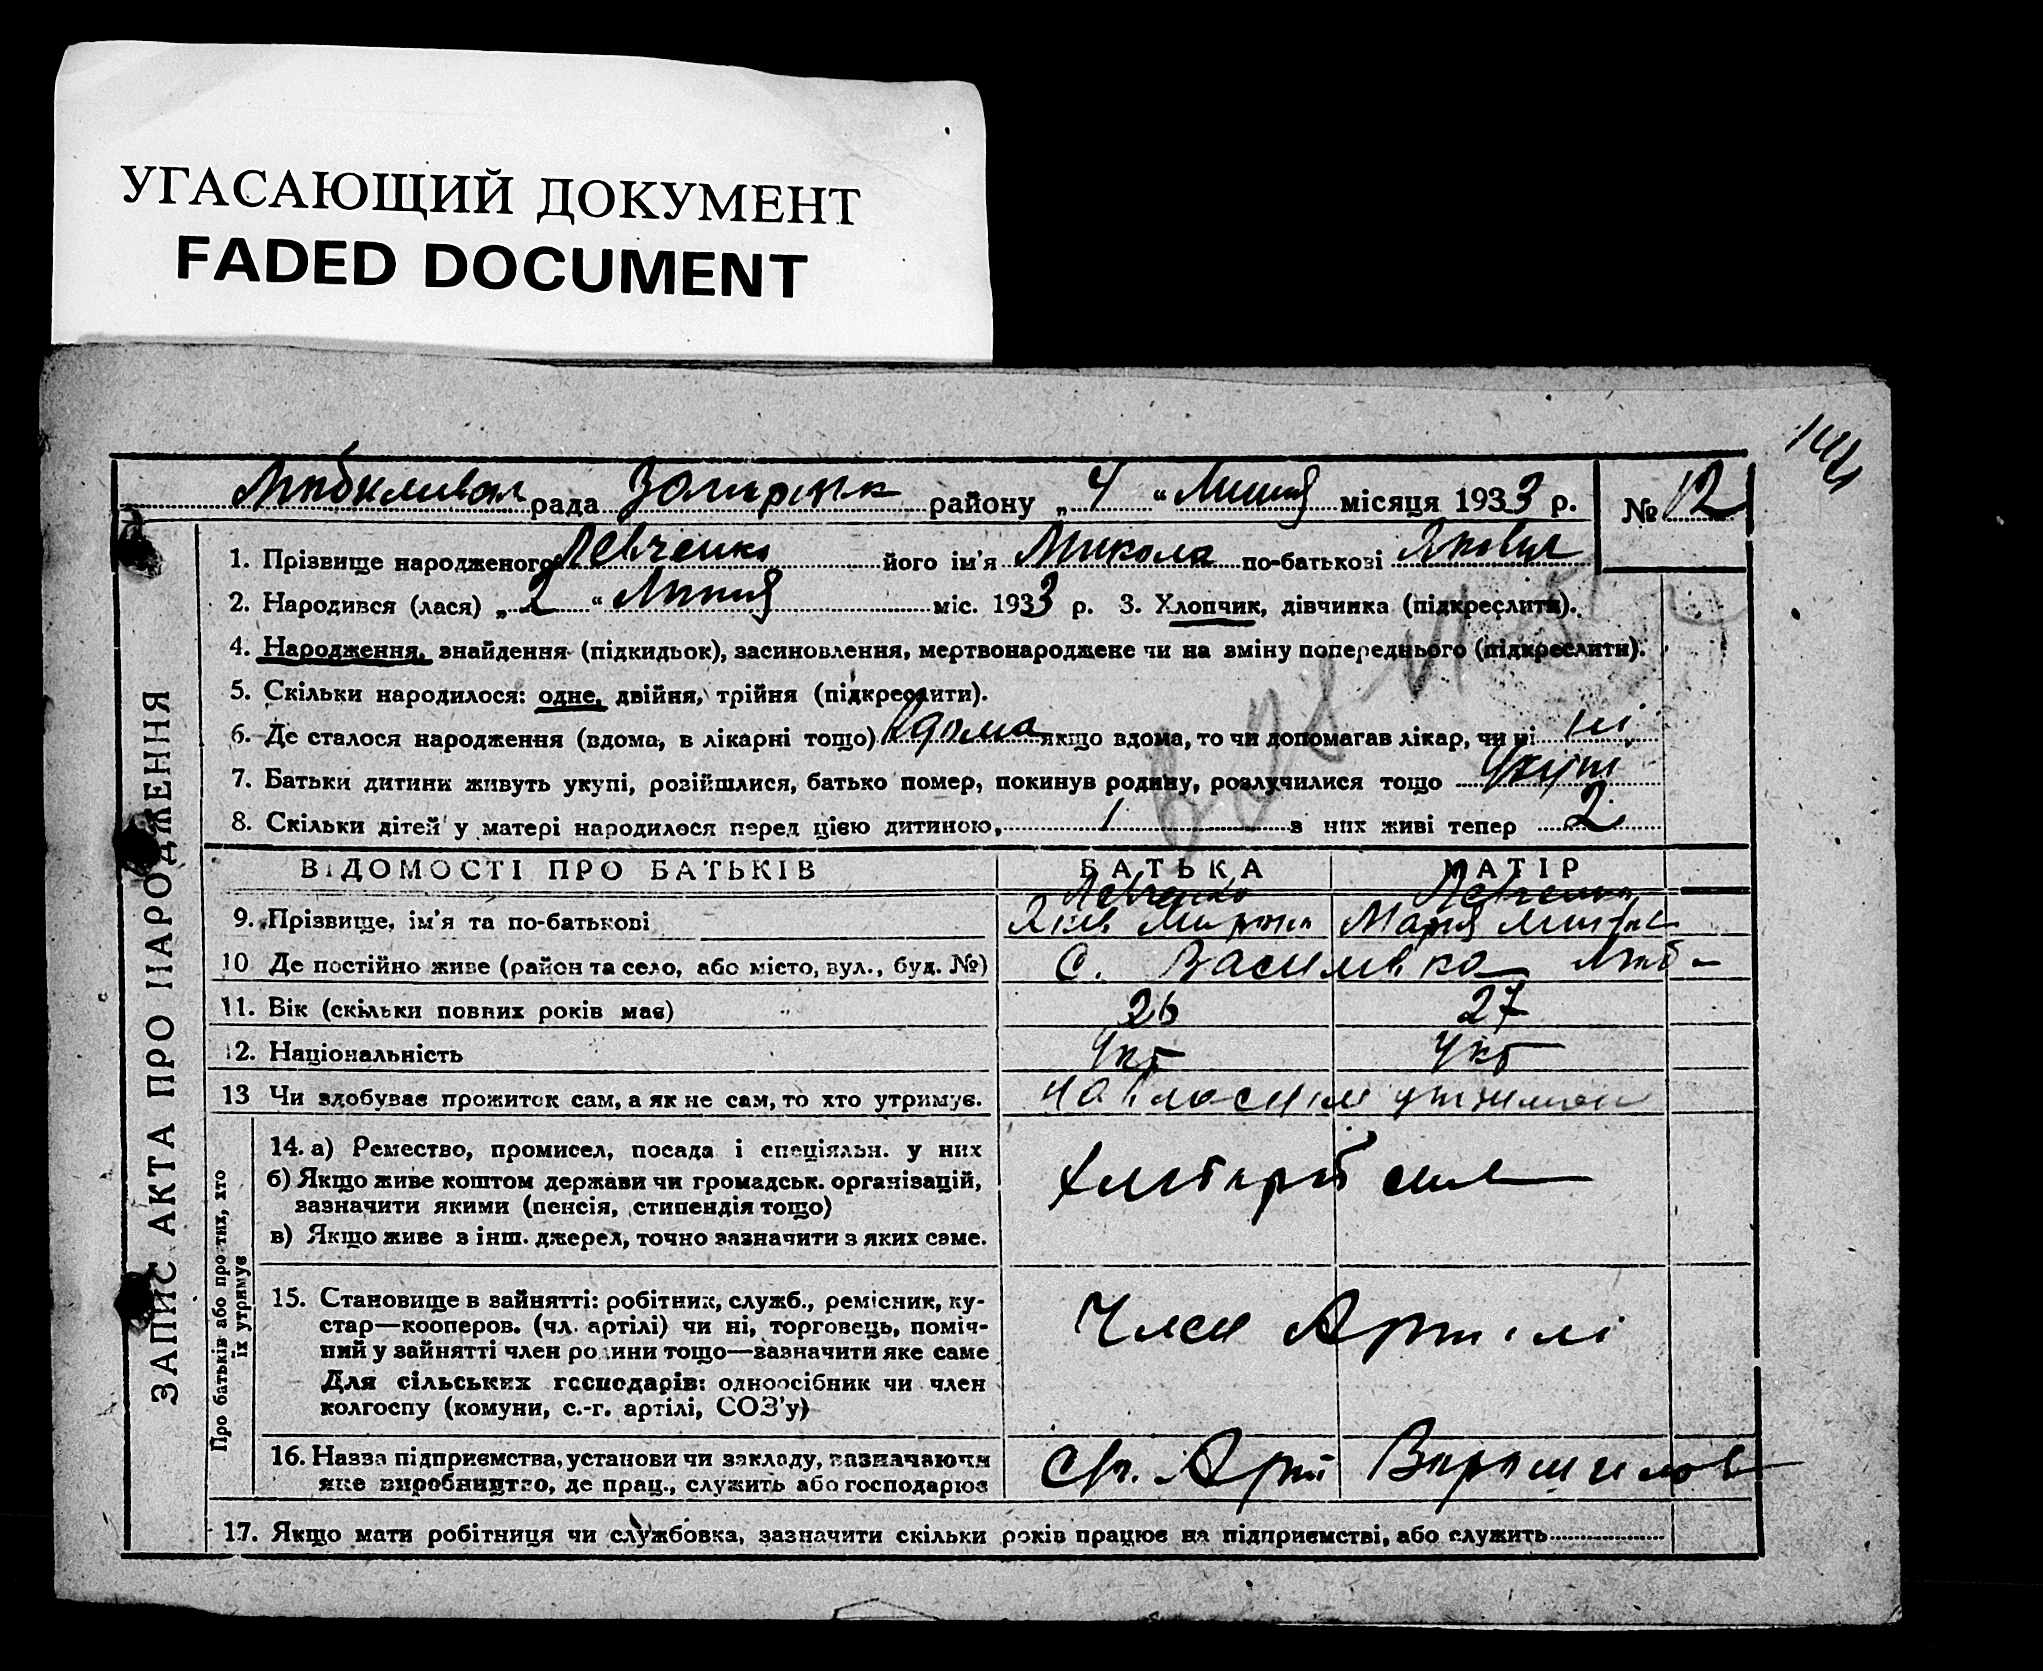 УГАСАЮЩИЙ ДОКУМЕНТ
FADED DOCUMENT
144
рада району „ 4 “ Липня місяця 1933 р. № 12
ЗАПИС АКТА ПРО НАРОДЖЕННЯ
1. Прізвище народженого Левченко його ім'я Микола по-батькові
2. Народився (лася) „ 2 “ Липня міс. 1933 р. 3. Хлопчик, дівчинка (підкреслити).
4. Народження, знайдення (підкидьок), засиновлення, мертвонароджене чи на зміну попереднього (підкреслити).
5. Скільки народилося: одне, двійня, трійня (підкреслити).
6. Де сталося народження (вдома, в лікарні тощо) вдома якщо вдома, то чи допомагав лікар, чи ні ні
7. Батьки дитини живуть укупі, розійшлися, батько помер, покинув родину, розлучилися тощо укупі
8. Скільки дітей у матері народилося перед цією дитиною, 1 з них живі тепер 2
ВІДОМОСТІ ПРО БАТЬКІВ БАТЬКА МАТІР
Левченко Левченко
9. Прізвище, ім'я та по-батькові Яків Мирон Марія
10 Де постійно живе (район та село, або місто, вул., буд. №) с. Василівка
11. Вік (скільки повних років має) 26 27
12. Національність Укр Укр
13 Чи здобуває прожиток сам, а як не сам, то хто утримує.
Про батьків або про тих, хто
їх утримує
14. а) Ремество, промисел, посада і спеціяльн. у них
б) Якщо живе коштом держави чи громадськ. організацій,
зазначити якими (пенсія, стипендія тощо)
в) Якщо живе з інш. джерел, точно зазначити з яких саме.
15. Становище в зайнятті: робітник, служб., ремісник, ку-
стар—кооперов. (чл. артілі) чи ні, торговець, поміч-
ний у зайнятті член родини тощо—зазначити яке саме
Член Артілі
Для сільських господарів: одноосібник чи член
колгоспу (комуни, с.-г. артілі, СОЗ'у)
16. Назва підприємства, установи чи закладу, зазначаючи
яке виробництво, де прац., служить або господарює
17. Якщо мати робітниця чи службовка, зазначити скільки років працює на підприємстві, або служить